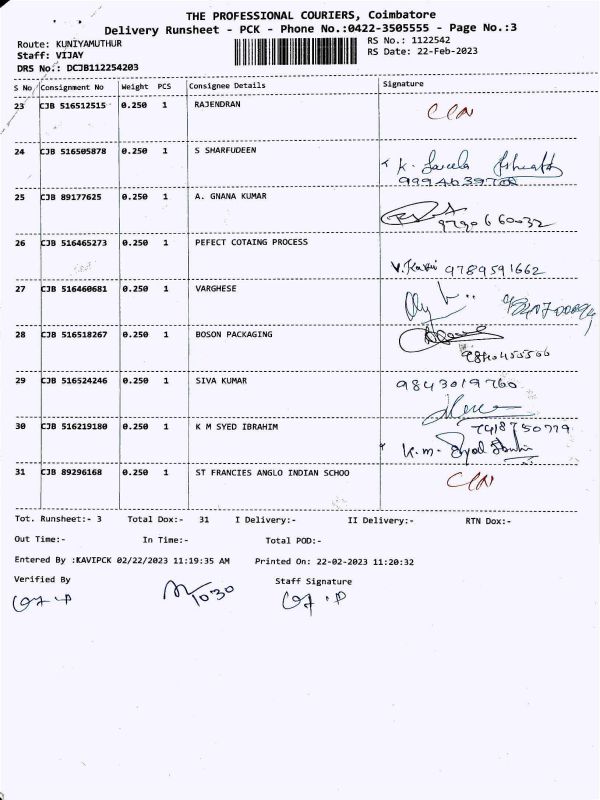 THE PROFESSIONAL COURIERS, Coimbatore
Delivery Runsheet - PCK - Phone No.:0422-3505555 - Page No.:3
Route: KUNIYAMUTHUR
Staff: VIJAY
DRS No.: DCJB112254203
RS No.: 1122542
RS Date: 22-Feb-2023
S No Consignment No Weight PCS Consignee Details Signature
23 CJB 516512515 0.250 1 RAJENDRAN
24 CJB 516505878 0.250 1 S SHARFUDEEN
K.
25 CJB 89177625 0.250 1 A. GNANA KUMAR
9790660032
26 CJB 516465273 0.250 1 PEFECT COTAING PROCESS
V. Kavi 9789591662
27 CJB 516460681 0.250 1 VARGHESE
28 CJB 516518267 0.250 1 BOSON PACKAGING
29 CJB 516524246 0.250 1 SIVA KUMAR
9843019760
30 CJB 516219180 0.250 1 K M SYED IBRAHIM
7418750779
K.M. Syed
31 CJB 89296168 0.250 1 ST FRANCIES ANGLO INDIAN SCHOO
Tot. Runsheet:- 3 Total Dox:- 31 I Delivery:- II Delivery:- RTN Dox:-
Out Time:- In Time:- Total POD:-
Entered By :KAVIPCK 02/22/2023 11:19:35 AM Printed On: 22-02-2023 11:20:32
Verified By Staff Signature
1030